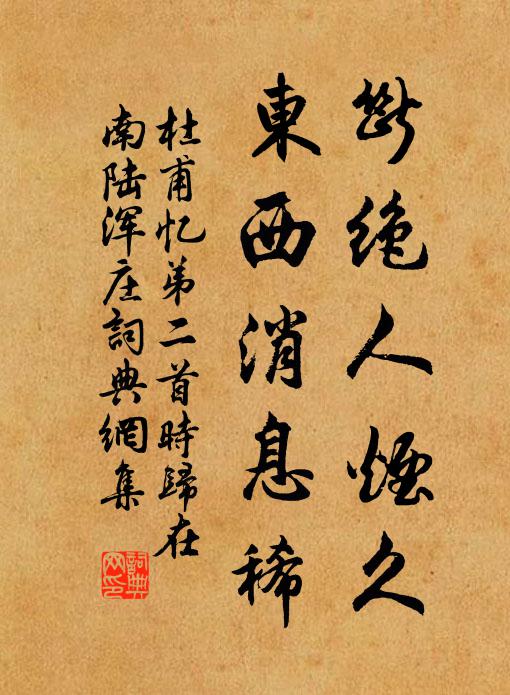 斷絶人煙久
東西消息稀
杜甫忆弟二首時歸在
南陆浑庄詞典網集
詞典网印